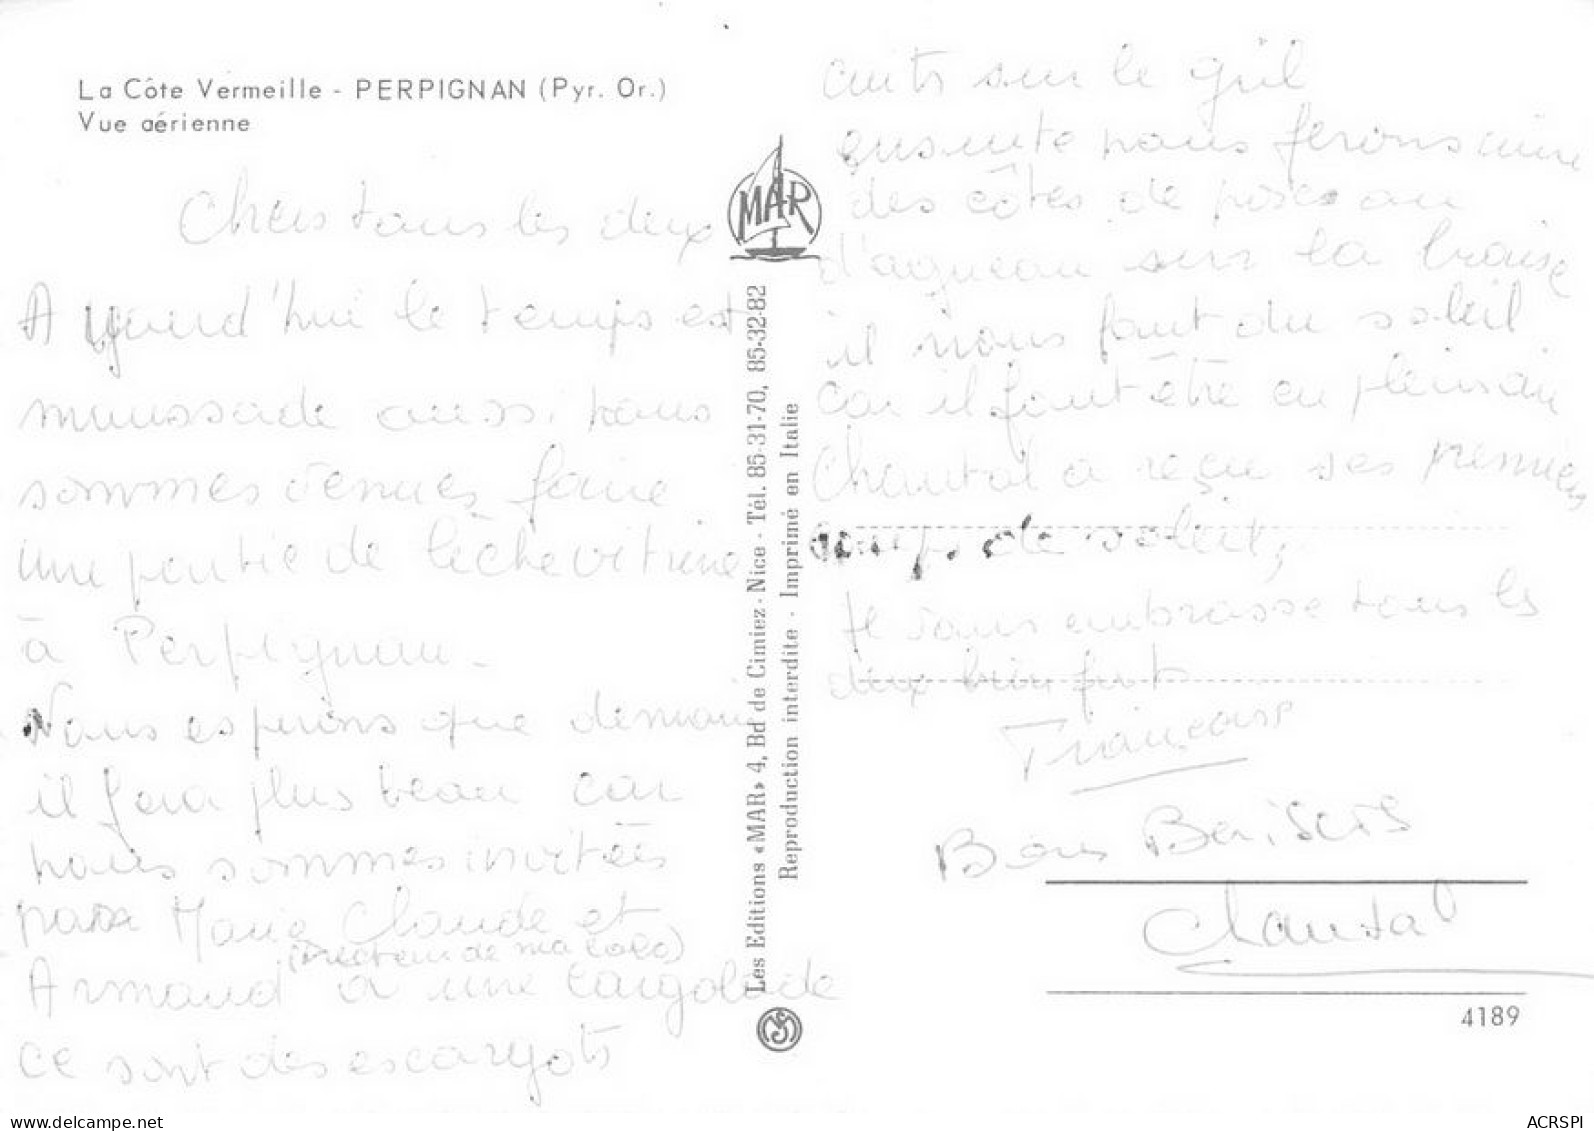 La Côte Vermeille - PERPIGNAN (Pyr. Or.)
Vue aérienne
Chers tous les deux
Aujourd'hui le temps est
maussade aussi nous
sommes venues faire
une partie de lèche vitrine
à Perpignan -
Nous espérons que demain
il fera plus beau car
nous sommes invitées
par Marie Claude et
(directeur de ma colo)
Armand à une cargolade
ce sont des escargots
MAR
Les Editions «MAR» 4, Bd de Cimiez - Nice - Tél. 85-31-70, 85-32-82
Reproduction interdite - Imprimé en Italie
cuits sur le gril
ensuite nous ferons cuire
des côtes de porc ou
d'agneau sur la braise
il nous faut du soleil
car il faut être en plein air
Chantal a reçu ses premiers
coups de soleil,
Je vous embrasse tous les
deux bien fort
Françoise
Bons Baisers
Chantal
4189
ACRSPI